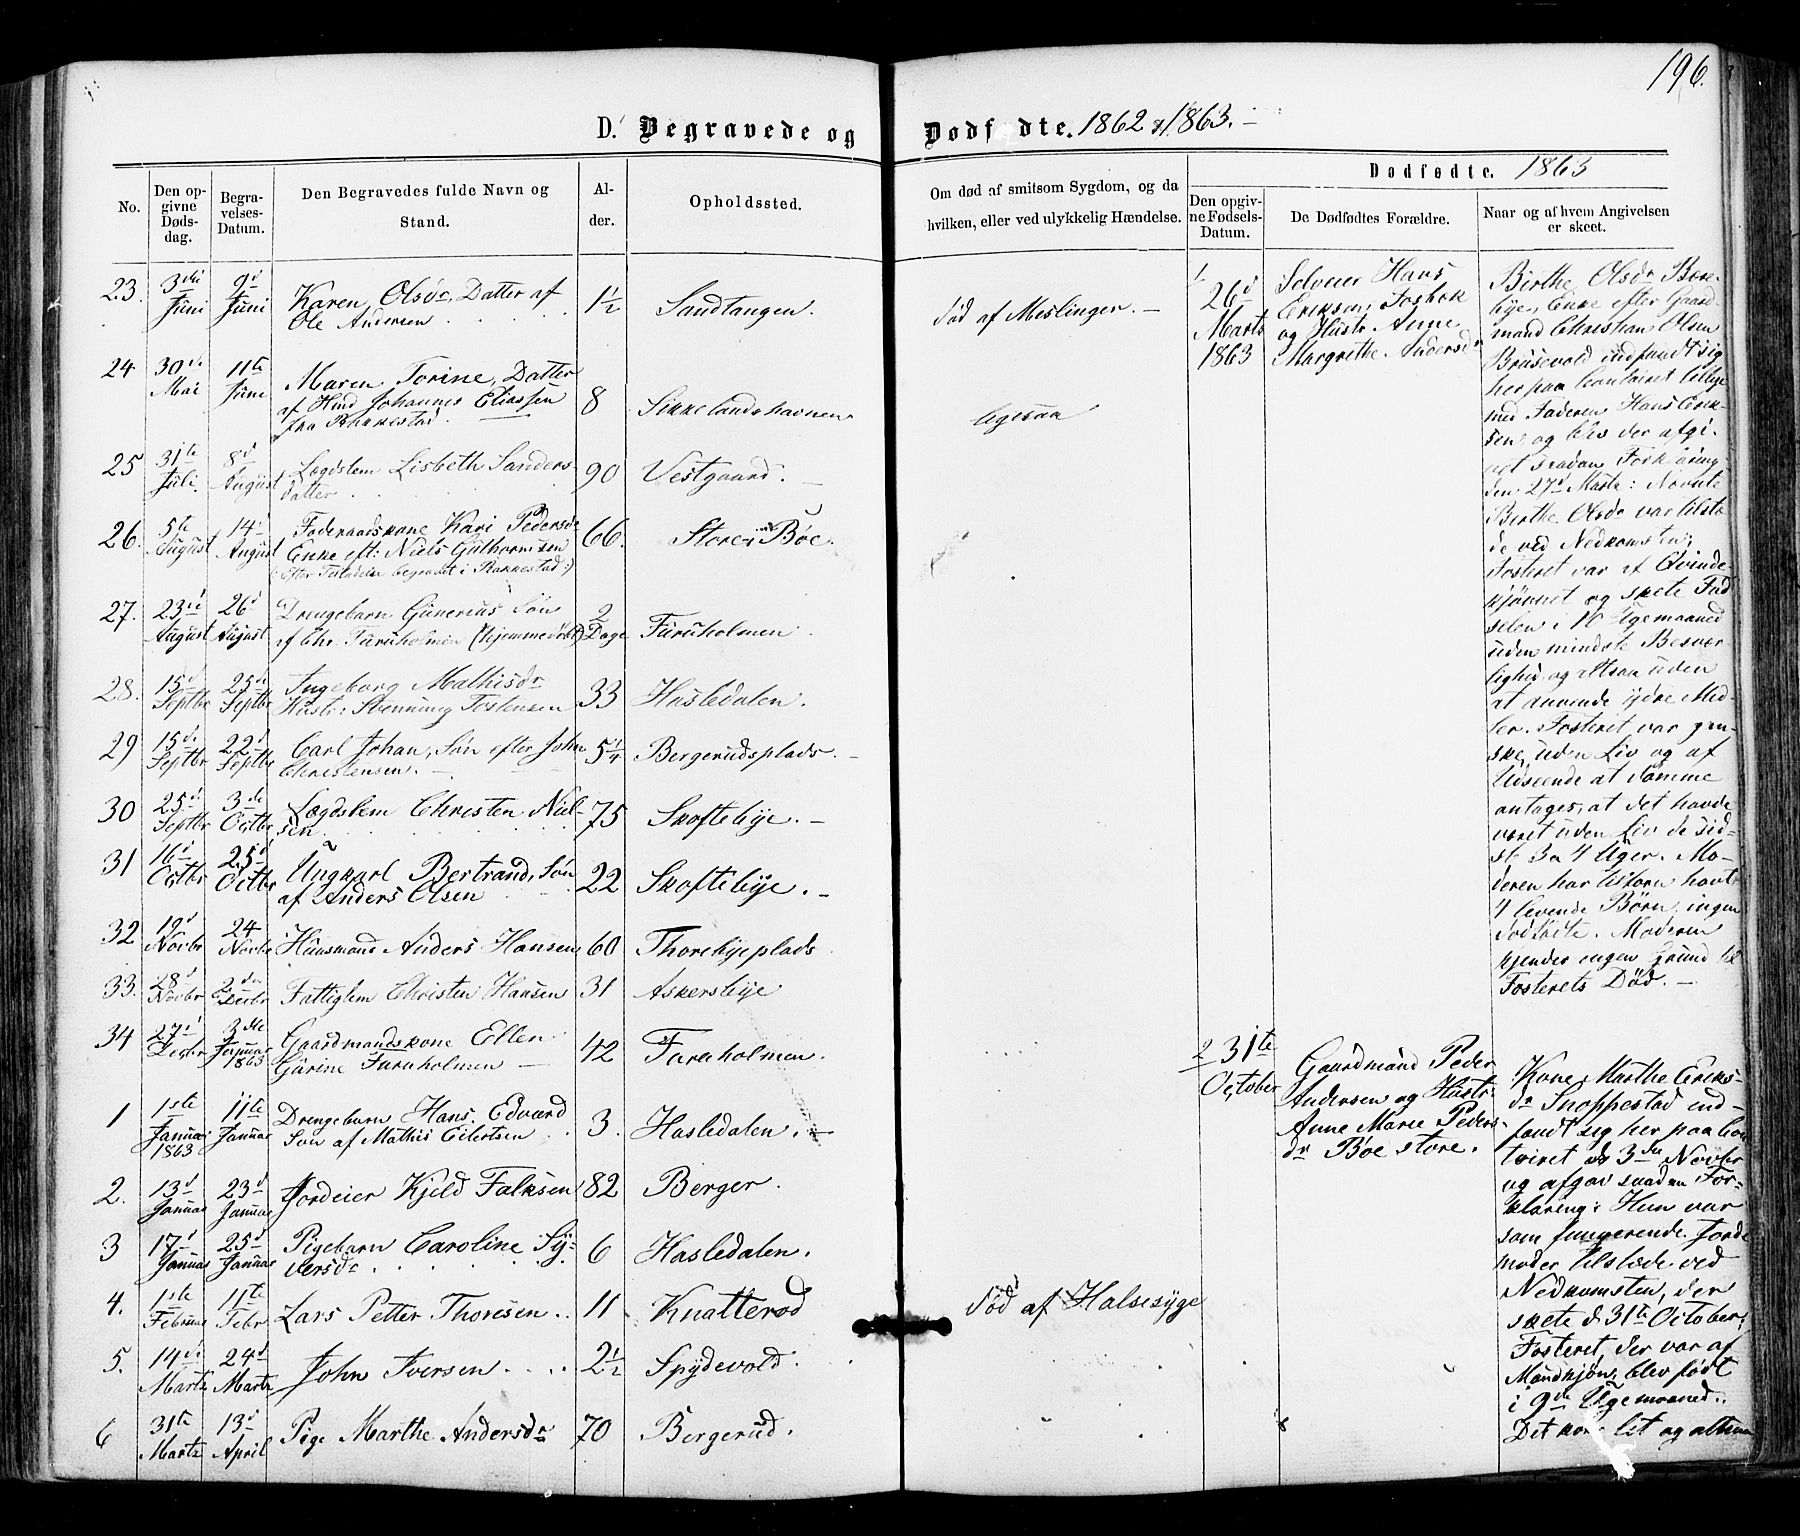 196.
D. Begravede og Dødfødte. 1862 & 1863. –
Dødfødte. 1863
No.
Den op-
givne
Døds-
dag.
Begra-
velses-
Datum.
Den Begravedes fulde Navn og
Stand.
Al-
der.
Opholdssted.
Om død af smitsom Sygdom, og da
hvilken, eller ved ulykkelig Hændelse.
Den opgiv-
ne Fødsels-
Datum.
De Dødfødtes Forældre.
Naar og af hvem Angivelsen
er skeet.
23. 3die Juni 9d Juni Karen Olsdr, Datter af
Ole Andersen 1½ Sandtangen. død af Meslinger. –
24. 30te Mai 11te Juni Maren Torine, Datter
af Hmd Johannes Eliassen
fra Rakkestad. 8 Sikkelandshavnen ligesaa
25 31te Juli. 8d August Lægdslem Lisbeth Sanders-
datter 90 Vestgaard. –
26. 5te August 14d August Føderaadskone Kari Pedersdr
Enke eft: Niels Guthormsen
(: Efter Tilladelse begravet i Rakkestad :) 66. Store Bøe.
27. 23de August 26d August Drengebarn Gunerius Søn
af Chr. Furuholmen (hjemmedøbt) 2 Dage Furuholmen.
28. 15d Septbr 25d Septbr Ingeborg Mathisdr
Hustr: Svenning Torstensen 33 Hasledalen.
29 15de Septbr 22d Septbr Carl Johan, Søn efter John
Christensen. – 5¼ Bergerudsplads. –
30 25d Septbr 3de Octbr Lægdslem Christen Niel-
sen 75 Skoftebye. –
31 16d Octbr 25d Octbr Ungkarl Bertrand, Søn
af Anders Olsen 22 Skoftebye. –
32 19d Novbr 24 Novbr Huusmand Anders Hansen 60 Thorebyeplads
33. 28d Novbr 2den Decbr Fattiglem Christen Hansen 31 Askersbye
34 27d Decbr 3die Januar 1863 Gaardmandskone Ellen
Gurine Furuholmen – 42 Furuholmen.
1 1ste Januar 1863 11te Januar Drengebarn Hans Edvard
Søn af Mathis Eilertsen 3. Hasledalen. –
2. 13d Januar 23d Januar Jordeier Kjeld Falksen 82 Berger.
3 17d Januar 25d Januar Pigebarn Caroline Sy-
versdr 6 Hasledalen.
4. 1ste Februar 11te Febr Lars Petter Thoresen 11 Knatterød død af Halsesyge
5. 14de Marts 24d Marts John Iversen 2½ Spydevold.
6 31te Marts 13d April Pige Marthe Andersdr 70 Bergerud.
1/ 26d
Marts
1863
Selveier Hans
Eriksen Fosbøk
og Hustr. Anne
Margrethe Andersdr
Birthe Olsdr Børe-
bye, Enke efter Gaard
mand Christian Olsen
Brusevold indfandt sig
her paa Contoiret tillige
med Faderen Hans Erik-
sen og blev der afgi-
vet saadan Forklaring
den 27d Marts: Nævnte
Birthe Olsdr var tilste-
de ved Nedkomsten;
Fosteret var af Qvinde
kjønnet og skete Fød
selen i 10 Ugemaaned
uden mindste Besvær
lighed og altsaa uden
at anvende ydre Mid-
ler. Fosteret var gan-
ske uden Liv og af
Udseende at dømme
antages, at det havde
været uden Liv de sid-
ste 3 a 4 Uger. Mo-
deren har tilforn havt
4 levende Børn, ingen
dødfødte. Moderen
kjender ingen Grund til
Fosterets Død. –
2 31te
October
Gaardmand Peder
Andersen og Hustr:
Anne Marie Peders-
dr Bøe store.
Kone Marthe Eriks-
dr Snoppestad ind-
fandt sig her paa Con
toiret d. 3die Novbr
og afgav saadan For-
klaring: Hun var
som fungerende Jorde
moder tilstede ved
Nedkomsten, der
skete d. 31te October;
Fosteret, der var af
Mandkjøn, blev født
i 9de Ugemaaned.
Det kom let og